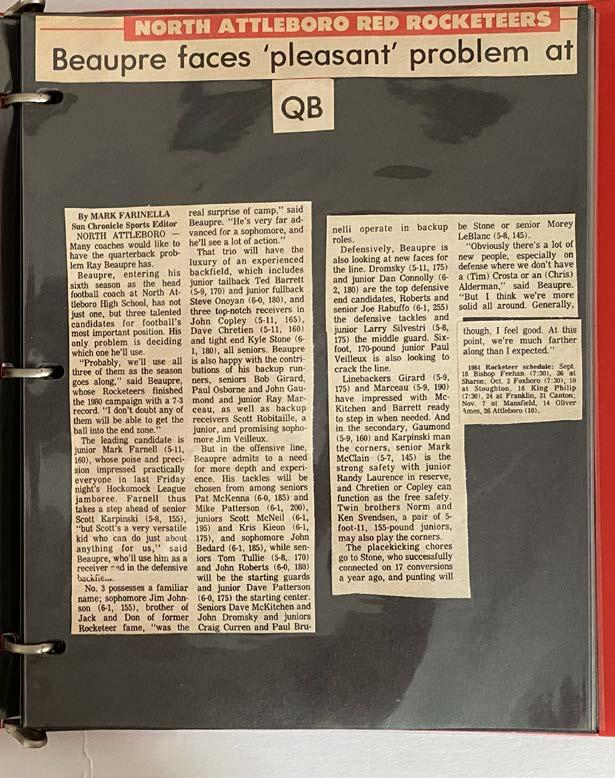 NORTH ATTLEBORO RED ROCKETEERS
Beaupre faces 'pleasant' problem at
QB
By MARK FARINELLA
Sun Chronicle Sports Editor
NORTH ATTLEBORO —
Many coaches would like to
have the quarterback prob-
lem Ray Beaupre has.
Beaupre, entering his
sixth season as the head
football coach at North At-
tleboro High School, has not
just one, but three talented
candidates for football's
most important position. His
only problem is deciding
which one he'll use.
"Probably, we'll use all
three of them as the season
goes along," said Beaupre,
whose Rocketeers finished
the 1980 campaign with a 7-3
record. "I don't doubt any of
them will be able to get the
ball into the end zone."
The leading candidate is
junior Mark Farnell (5-11,
160), whose poise and preci-
sion impressed practically
everyone in last Friday
night's Hockomock League
jamboree. Farnell thus
takes a step ahead of senior
Scott Karpinski (5-8, 155),
"but Scott's a very versatile
kid who can do just about
anything for us," said
Beaupre, who'll use him as a
receiver and in the defensive
backfield.
No. 3 possesses a familiar
name; sophomore Jim John-
son (6-1, 155), brother of
Jack and Don of former
Rocketeer fame, "was the
real surprise of camp," said
Beaupre. "He's very far ad-
vanced for a sophomore, and
he'll see a lot of action."
That trio will have the
luxury of an experienced
backfield, which includes
junior tailback Ted Barrett
(5-9, 170) and junior fullback
Steve Onoyan (6-0, 180), and
three top-notch receivers in
John Copley (5-11, 165),
Dave Chretien (5-11, 160)
and tight end Kyle Stone (6-
1, 180), all seniors. Beaupre
is also happy with the contri-
butions of his backup run-
ners, seniors Bob Girard,
Paul Osborne and John Gau-
mond and junior Ray Mar-
ceau, as well as backup
receivers Scott Robitaille, a
junior, and promising sopho-
more Jim Veilleux.
But in the offensive line,
Beaupre admits to a need
for more depth and experi-
ence. His tackles will be
chosen from among seniors
Pat McKenna (6-0, 185) and
Mike Patterson (6-1, 200),
juniors Scott McNeil (6-1,
195) and Kris Kieon (6-1,
175), and sophomore John
Bedard (6-1, 185), while sen-
iors Tom Tullie (5-8, 170)
and John Roberts (6-0, 180)
will be the starting guards
and junior Dave Patterson
(6-0, 175) the starting center.
Seniors Dave McKitchen and
John Dromsky and juniors
Craig Curren and Paul Bru-
nelli operate in backup
roles.
Defensively, Beaupre is
also looking at new faces for
the line. Dromsky (5-11, 175)
and junior Dan Connolly (6-
2, 180) are the top defensive
end candidates, Roberts and
senior Joe Rabuffo (6-1, 255)
the defensive tackles and
junior Larry Silvestri (5-8,
175) the middle guard. Six-
foot, 170-pound junior Paul
Veilleux is also looking to
crack the line.
Linebackers Girard (5-9,
175) and Marceau (5-9, 190)
have impressed with Mc-
Kitchen and Barrett ready
to step in when needed. And
in the secondary, Gaumond
(5-9, 160) and Karpinski man
the corners, senior Mark
McClain (5-7, 145) is the
strong safety with junior
Randy Laurence in reserve,
and Chretien or Copley can
function as the free safety.
Twin brothers Norm and
Ken Svendsen, a pair of 5-
foot-11, 155-pound juniors,
may also play the corners.
The placekicking chores
go to Stone, who successfully
connected on 17 conversions
a year ago, and punting will
be Stone or senior Morey
LeBlanc (5-8, 145).
"Obviously there's a lot of
new people, especially on
defense where we don't have
a (Tim) Crosta or an (Chris)
Alderman," said Beaupre.
"But I think we're more
solid all around. Generally,
though, I feel good. At this
point, we're much farther
along than I expected."
1981 Rocketeer schedule: Sept.
18 Bishop Feehan (7:30), 26 at
Sharon; Oct. 2 Foxboro (7:30), 10
at Stoughton, 16 King Philip
(7:30), 24 at Franklin, 31 Canton;
Nov. 7 at Mansfield, 14 Oliver
Ames, 26 Attleboro (10).